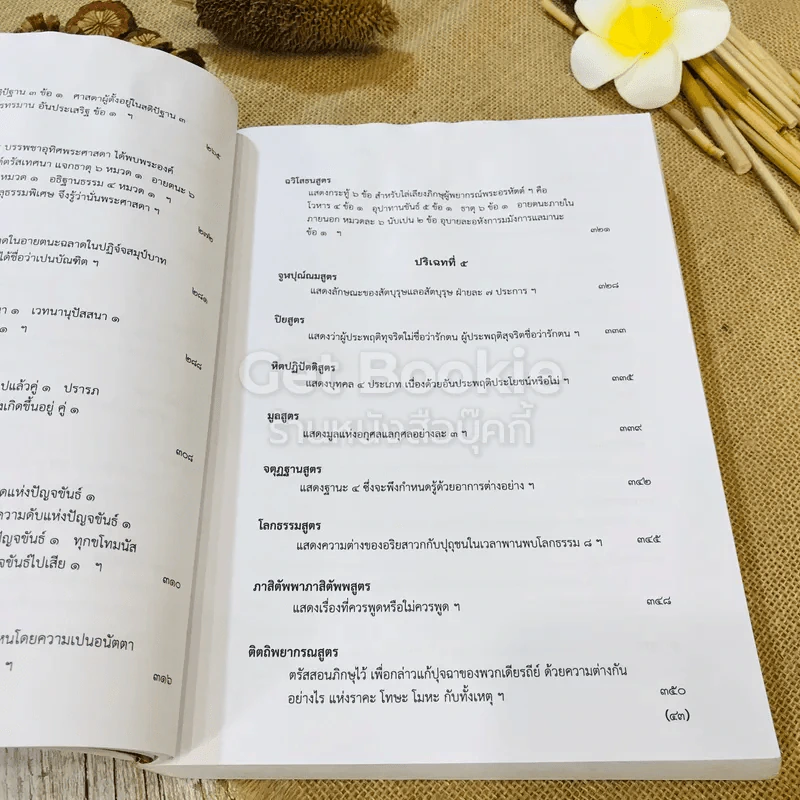 ปัฏฐาน ๓ ข้อ ๑ ศาสดาผู้ตั้งอยู่ในสติปัฏฐาน ๓
อันประเสริฐ ข้อ ๑ ฯ
๒๖๕
บรรพชาอุทิศพระศาสดา ได้พบพระองค์
ตรัสเทศนา แจกธาตุ ๖ หมวด ๑ อายตนะ ๖
๑ อธิฐานธรรม ๔ หมวด ๑ ฯ
ธรรมพิเศษ จึงรู้ว่านั่นพระศาสดา ฯ
๒๗๒
ในอายตนะฉลาดในปฏิจจสมุป์บาท
ได้ชื่อว่าเปนบัณฑิต ฯ
๒๘๑
๑ เวทนานุปัสสนา ๑
๑ ฯ
๒๘๘
ไปแล้วคู่ ๑ ปรารภ
เกิดขึ้นอยู่ คู่ ๑
๓๐๘
แห่งปัญจขันธ์ ๑
ความดับแห่งปัญจขันธ์ ๑
ปัญจขันธ์ ๑ ทุกขโทมนัส
ขันธ์ไปเสีย ๑ ฯ
๓๑๐
โดยความเปนอนัตตา
ฯ
๓๑๖
ฉวิโสธนสูตร
แสดงกระทู้ ๖ ข้อ สำหรับไล่เลียงภิกษุผู้พยากรณ์พระอรหัตต์ ฯ คือ
โวหาร ๔ ข้อ ๑ อุปาทานขันธ์ ๕ ข้อ ๑ ธาตุ ๖ ข้อ ๑ อายตนะภายใน
ภายนอก หมวดละ ๖ นับเปน ๒ ข้อ อุบายละอหังการมมังการแลมานะ
ข้อ ๑ ฯ ๓๒๑
ปริเฉทที่ ๕
จูฬปุณ์ณมสูตร
แสดงลักษณะของสัตบุรุษแลอสัตบุรุษ ฝ่ายละ ๗ ประการ ฯ ๓๒๘
ปิยสูตร
แสดงว่าผู้ประพฤติทุจริตไม่ชื่อว่ารักตน ผู้ประพฤติสุจริตชื่อว่ารักตน ฯ ๓๓๓
หิตปฏิปัตติสูตร
แสดงบุคคล ๔ ประเภท เนื่องด้วยอันประพฤติประโยชน์หรือไม่ ฯ ๓๓๕
Get Bookie
มูลสูตร
แสดงมูลแห่งอกุศลแลกุศลอย่างละ ๓ ฯ ๓๓๙
ร้านหนังสือบุ๊คกี้
จตุฏฐานสูตร
แสดงฐานะ ๔ ซึ่งจะพึงกำหนดรู้ด้วยอาการต่างอย่าง ฯ ๓๔๒
โลกธรรมสูตร
แสดงความต่างของอริยสาวกกับปุถุชนในเวลาพานพบโลกธรรม ๘ ฯ ๓๔๕
ภาสิตัพพาภาสิตัพพสูตร
แสดงเรื่องที่ควรพูดหรือไม่ควรพูด ฯ ๓๔๘
ติตถิพยากรณสูตร
ตรัสสอนภิกษุไว้ เพื่อกล่าวแก้ปุจฉาของพวกเดียรถีย์ ด้วยความต่างกัน
อย่างไร แห่งราคะ โทษะ โมหะ กับทั้งเหตุ ฯ ๓๕๐
(๔๓)